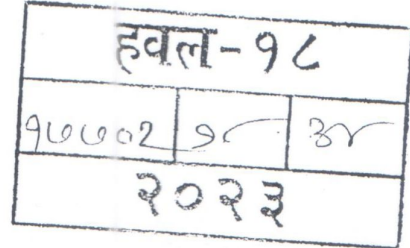 हवल-१८
१७७०२ ३४
२०२३